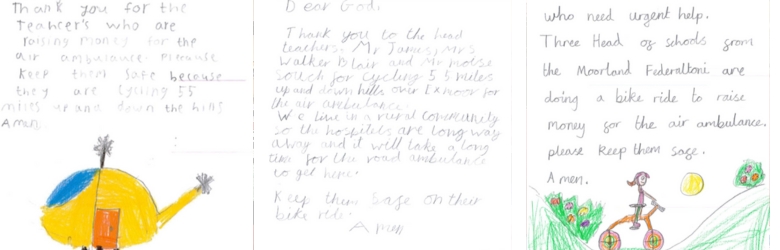 Thank you for the
Teancer's who are
raising money for the
air ambulance. Please
keep them safe because
they are cycling 55
miles up and down the hills
Amen
Dear God,
Thank you to the head
teachers. Mr James, Mrs
Walker Blair and Mr
for cycling 55 miles
up and down hills over Exmoor for
the air ambulance.
We live in a rural community
so the hospitels are long way
away and it will take a long
time for the road ambulance
to get here.
Keep them safe on their
bike ride.
Amen
who need urgent help.
Three Head of schools from
the Moorland are
doing a bike ride to raise
money for the air ambulance.
please keep them safe.
Amen.